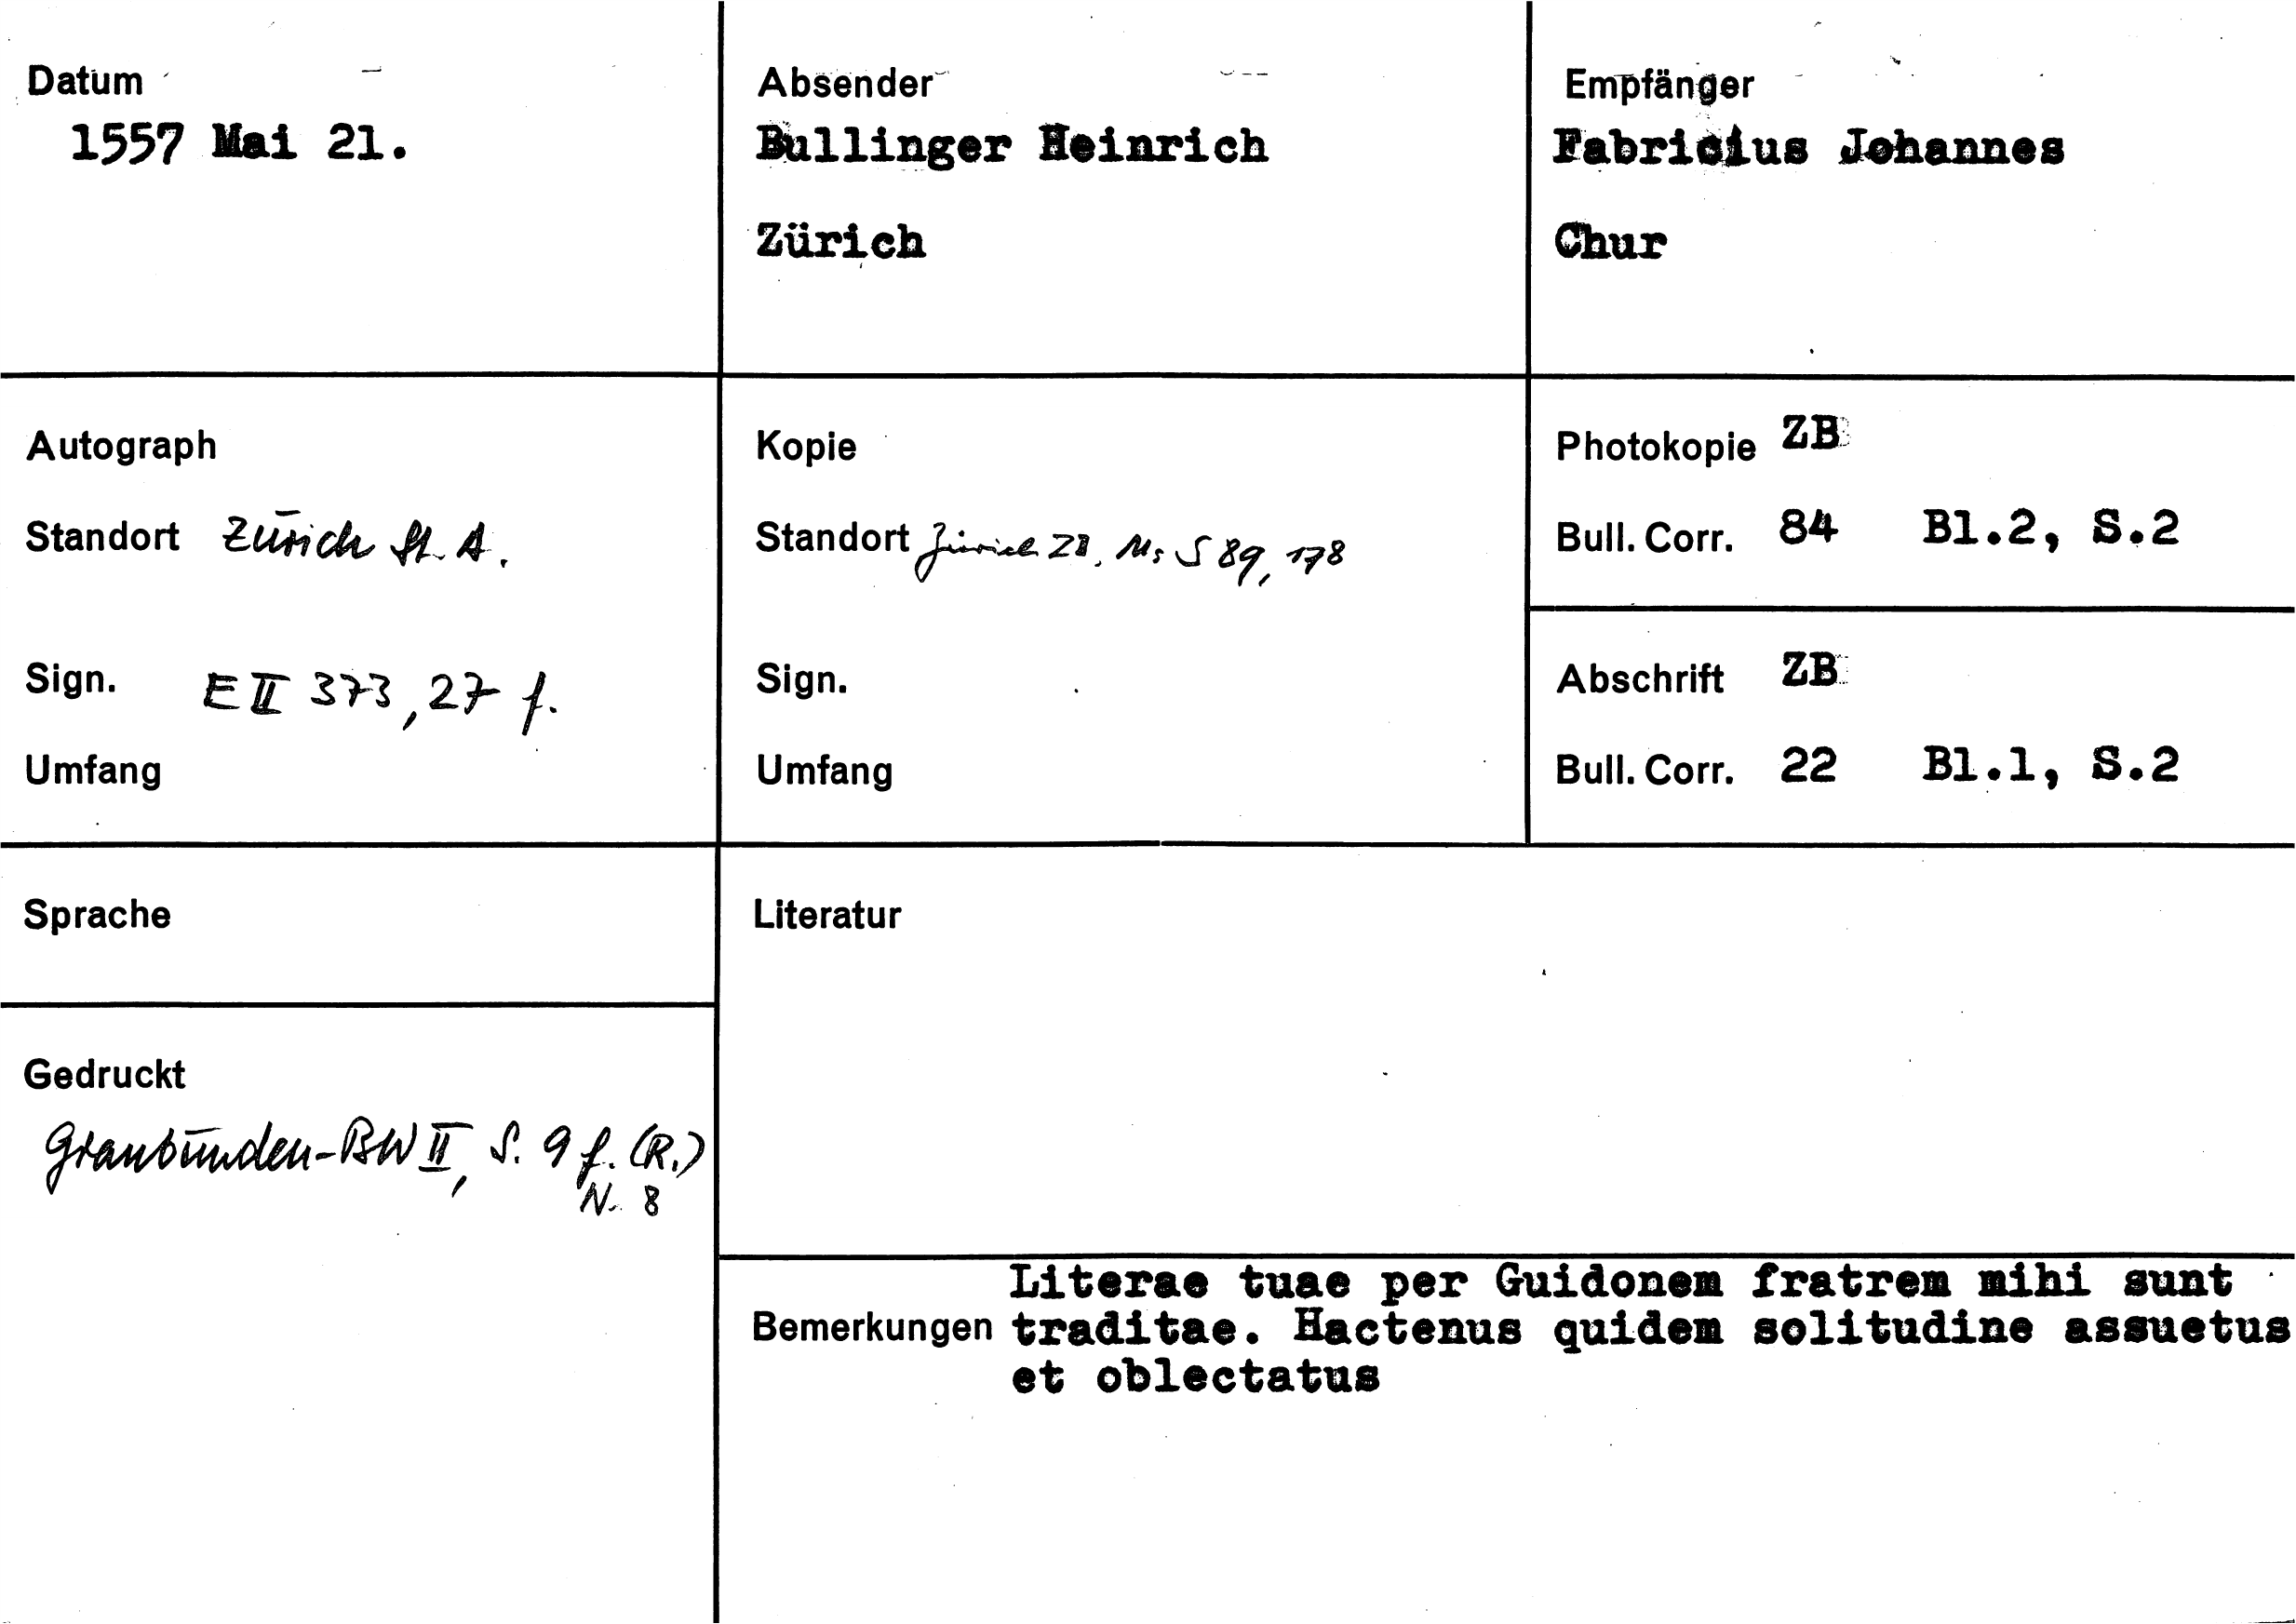 Datum
1557 Mai 21.
Absender
Bullinger Heinrich
Zürich
Empfänger
Fabricius Johannes
Chur
Autograph
Standort Zürich St. A.
Sign. E II 373, 27 f.
Umfang
Kopie
Standort Zürich ZB, Ms S 89, 178
Sign.
Umfang
Photokopie ZB
Bull. Corr. 84 Bl.2, S.2
Abschrift ZB
Bull. Corr. 22 Bl.1, S.2
Sprache
Literatur
Gedruckt
Graubünden-BW II, S. 9 f. (R.)
N. 8
Literae tuae per Guidonem fratrem mihi sunt
Bemerkungen traditae. Hactenus quidem solitudine assuetus
et oblectatus